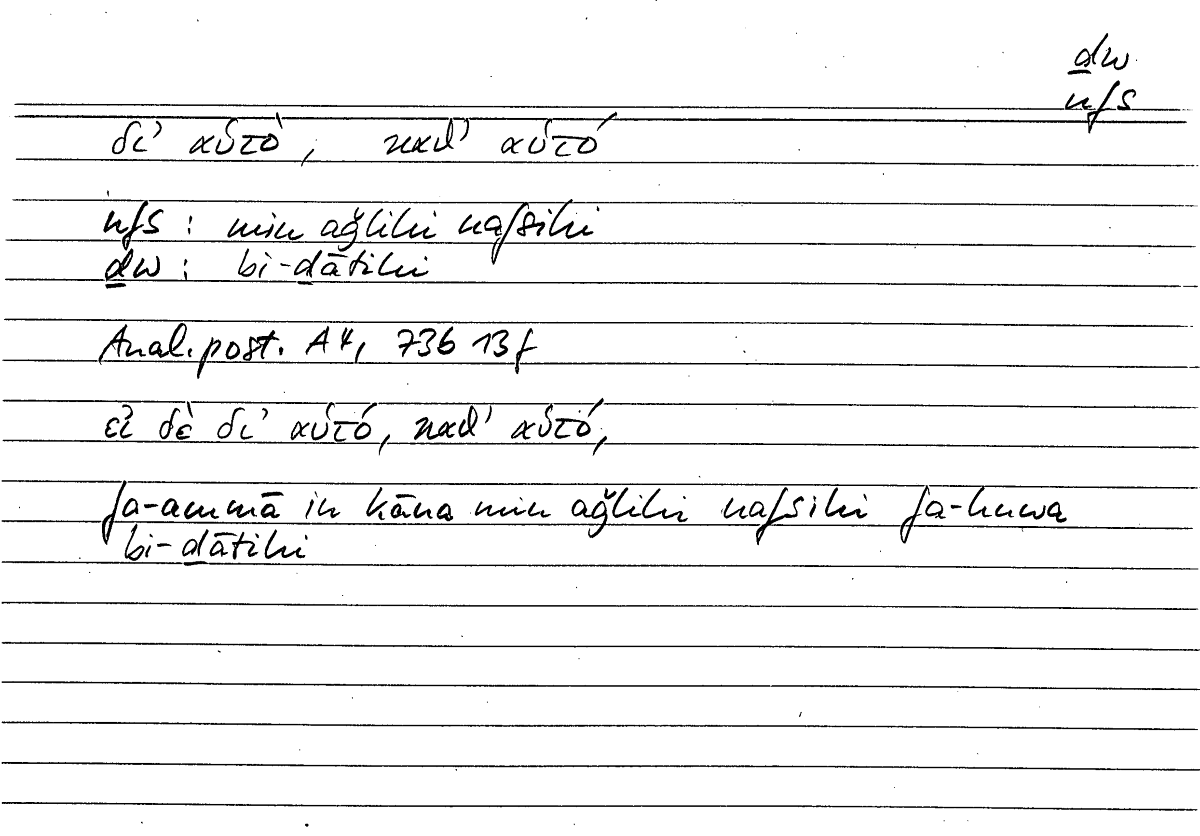 ḏw
nfs
δι’ αὑτὸ, καθ’ αὑτό
nfs : min ağlihi nafsihi
ḏw : bi-ḏātihi
Anal. post. A4, 73b 13f
εἰ δὲ δι’ αὑτό, καθ’ αὑτό,
fa-ammā in kāna min ağlihi nafsihi fa-huwa
bi-ḏātihi